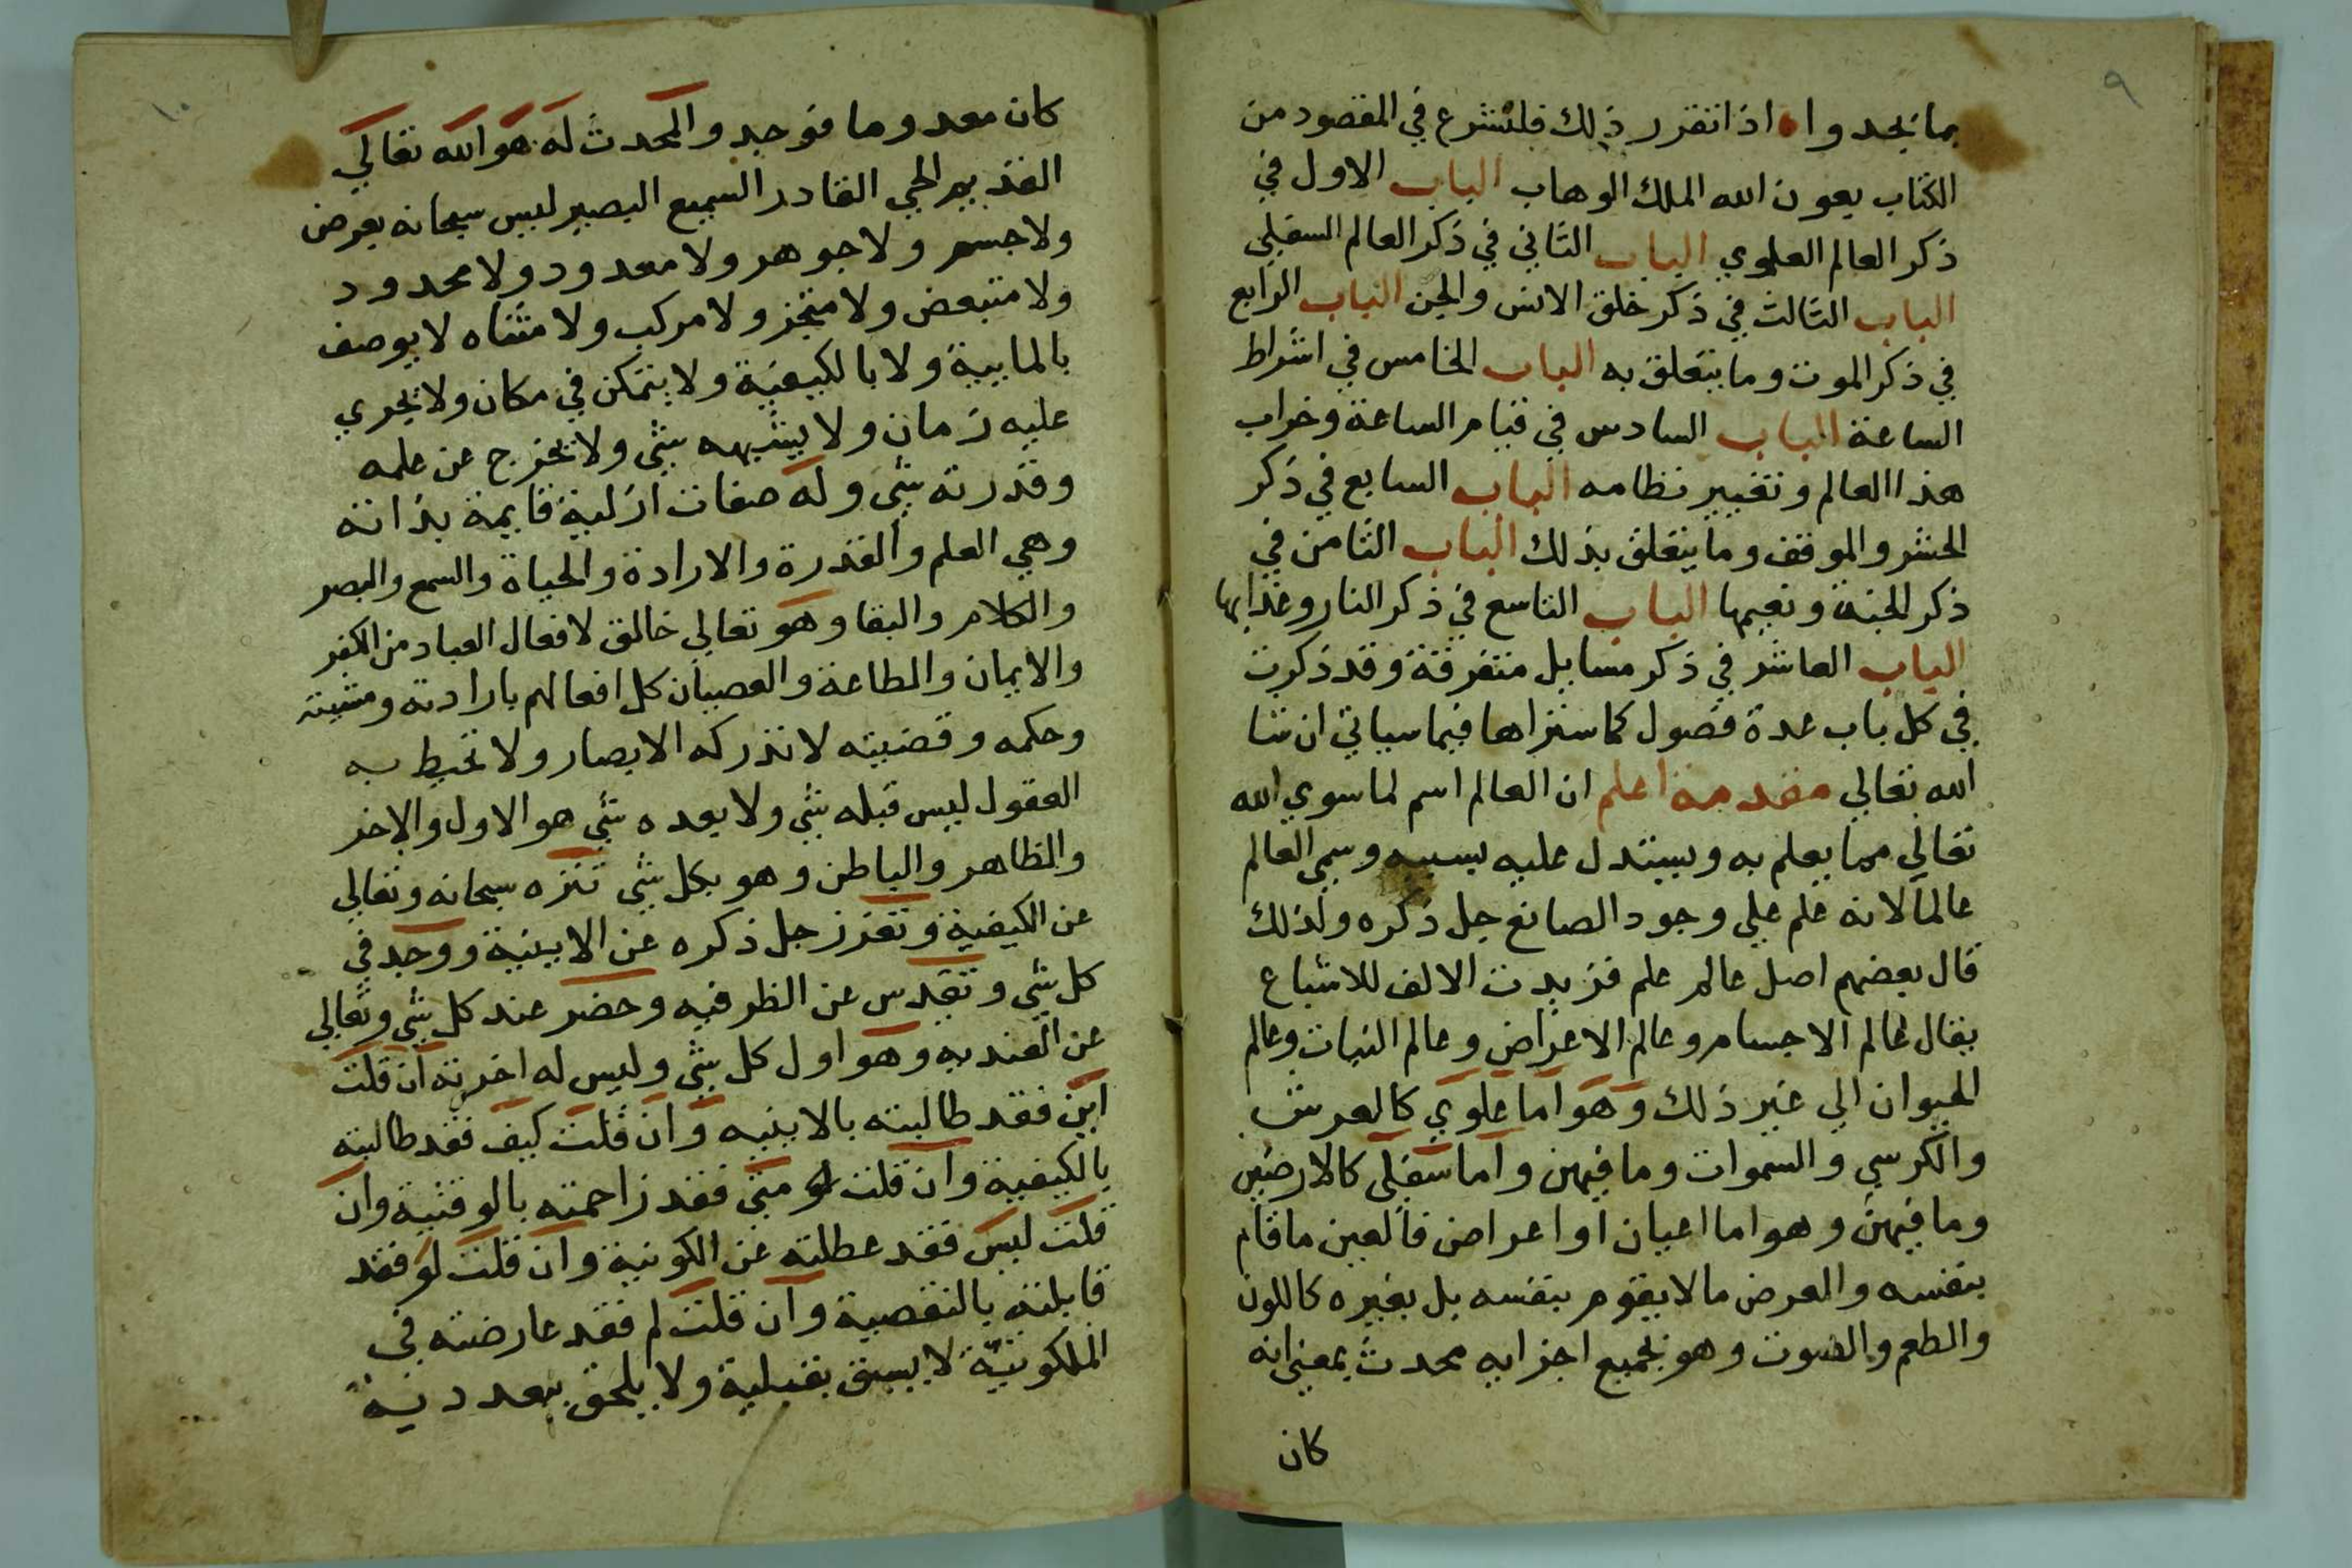 ٩
بما يجدوا اذا تقرر ذلك فلنشرع في المقصود من
الكتاب بعون الله الملك الوهاب الباب الاول في
ذكر العالم العلوي الباب الثاني في ذكر العالم السفلي
الباب الثالث في ذكر خلق الانس والجن الباب الرابع
في ذكر الموت وما يتعلق به الباب الخامس في اشراط
الساعة الباب السادس في قيام الساعة وخراب
هذا العالم وتغيير نظامه الباب السابع في ذكر
الحشر والموقف وما يتعلق بذلك الباب الثامن في
ذكر الجنة ونعيمها الباب التاسع في ذكر النار وعذابها
الباب العاشر في ذكر مسايل متفرقة وقد ذكرت
في كل باب عدة فصول كما ستراها فيما سياتي ان شا
الله تعالي مقدمة اعلم ان العالم اسم لما سوي الله
تعالي مما يعلم به ويستدل عليه بسببه وسمي العالم
عالما لانه علم علي وجود الصانع جل ذكره ولذلك
قال بعضهم اصل عالم علم فزيدت الالف للاشباع
يقال عالم الاجسام وعالم الاعراض وعالم النبات وعالم
الحيوان الي غير ذلك وهو اما علوي كالعرش
والكرسي والسموات وما فيهن واما سفلي كالارضين
وما فيهن وهو اما اعيان او اعراض فالعين ما قام
بنفسه والعرض ما لا يقوم بنفسه بل بغيره كاللون
والطعم والصوت وهو بجميع اجزايه محدث بمعني انه
كان
١٠
كان معدوما فوجد والمحدث له هو الله تعالي
القديم الحي القادر السميع البصير ليس سبحانه بعرض
ولا جسم ولا جوهر ولا معدود ولا محدود
ولا متبعض ولا متجز ولا مركب ولا متناه لا يوصف
بالماييية ولا بالكيفية ولا يتمكن في مكان ولا يجري
عليه زمان ولا يشبهه شي ولا يخرج عن علمه
وقدرته شي وله صفات ازلية قايمة بذاته
وهي العلم والقدرة والارادة والحياة والسمع والبصر
والكلام والبقا وهو تعالي خالق لافعال العباد من الكفر
والايمان والطاعة والعصيان كل افعالهم بارادته ومشيته
وحكمه وقضيته لا تدركه الابصار ولا تحيط به
العقول ليس قبله شي ولا بعده شي هو الاول والاخر
والظاهر والباطن وهو بكل شي تنزه سبحانه وتعالي
عن الكيفية وتعزز جل ذكره عن الاينية ووجد في
كل شي وتقدس عن الظرفيه وحضر عند كل شي وتعالي
عن العنديه وهو اول كل شي وليس له اخرته ان قلت
اين فقد طالبته بالاينيه وان قلت كيف فقد طالبته
بالكيفية وان قلت متي فقد زاحمته بالوقتية وان
قلت ليس فقد عطلته عن الكونية وان قلت لو فقد
قابلته بالنقصية وان قلت لم فقد عارضته في
الملكوتية لا يسبق بقبلية ولا يلحق ببعددية